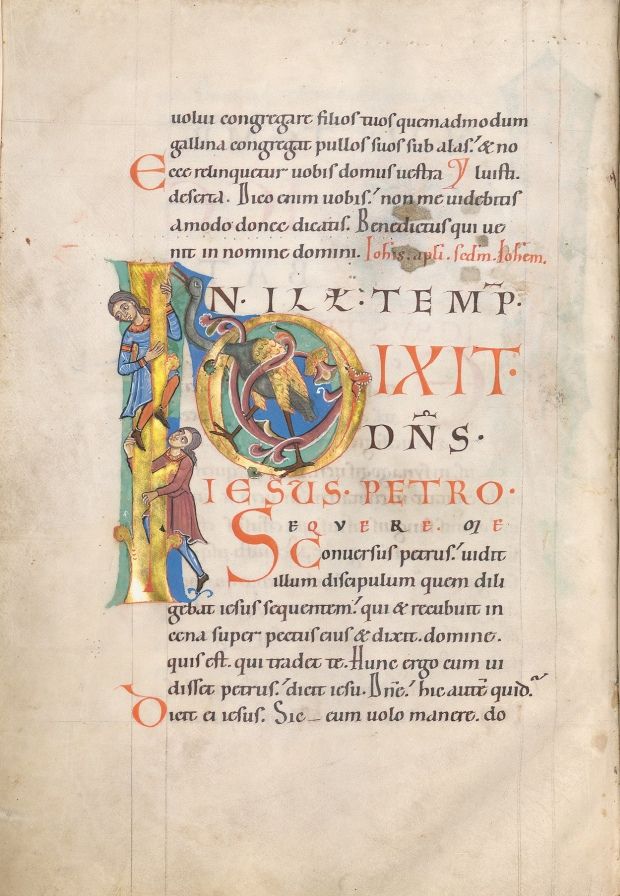 uolui congregare filios tuos quemadmodum
gallina congregat pullos suos sub alas. & no
Ecce relinquetur uobis domus uestra luisti.
deserta. Dico enim uobis. non me uidebitis
amodo donec dicatis. Benedictus qui ue
nit in nomine domini. Iohis. apli. sedm. Iohem.
IN. ILL. TEMP.
DIXIT.
DNS.
IESUS. PETRO.
SEQUERE. ME
Conuersus petrus. uidit
illum discipulum quem dili
gebat iesus sequentem. qui & recubuit in
cena super pectus eius & dixit. domine.
quis est. qui tradet te. Hunc ergo cum ui
disset petrus. dicit iesu. Dne. hic aute quid.
Dicit ei iesus. Sic eum uolo manere. do